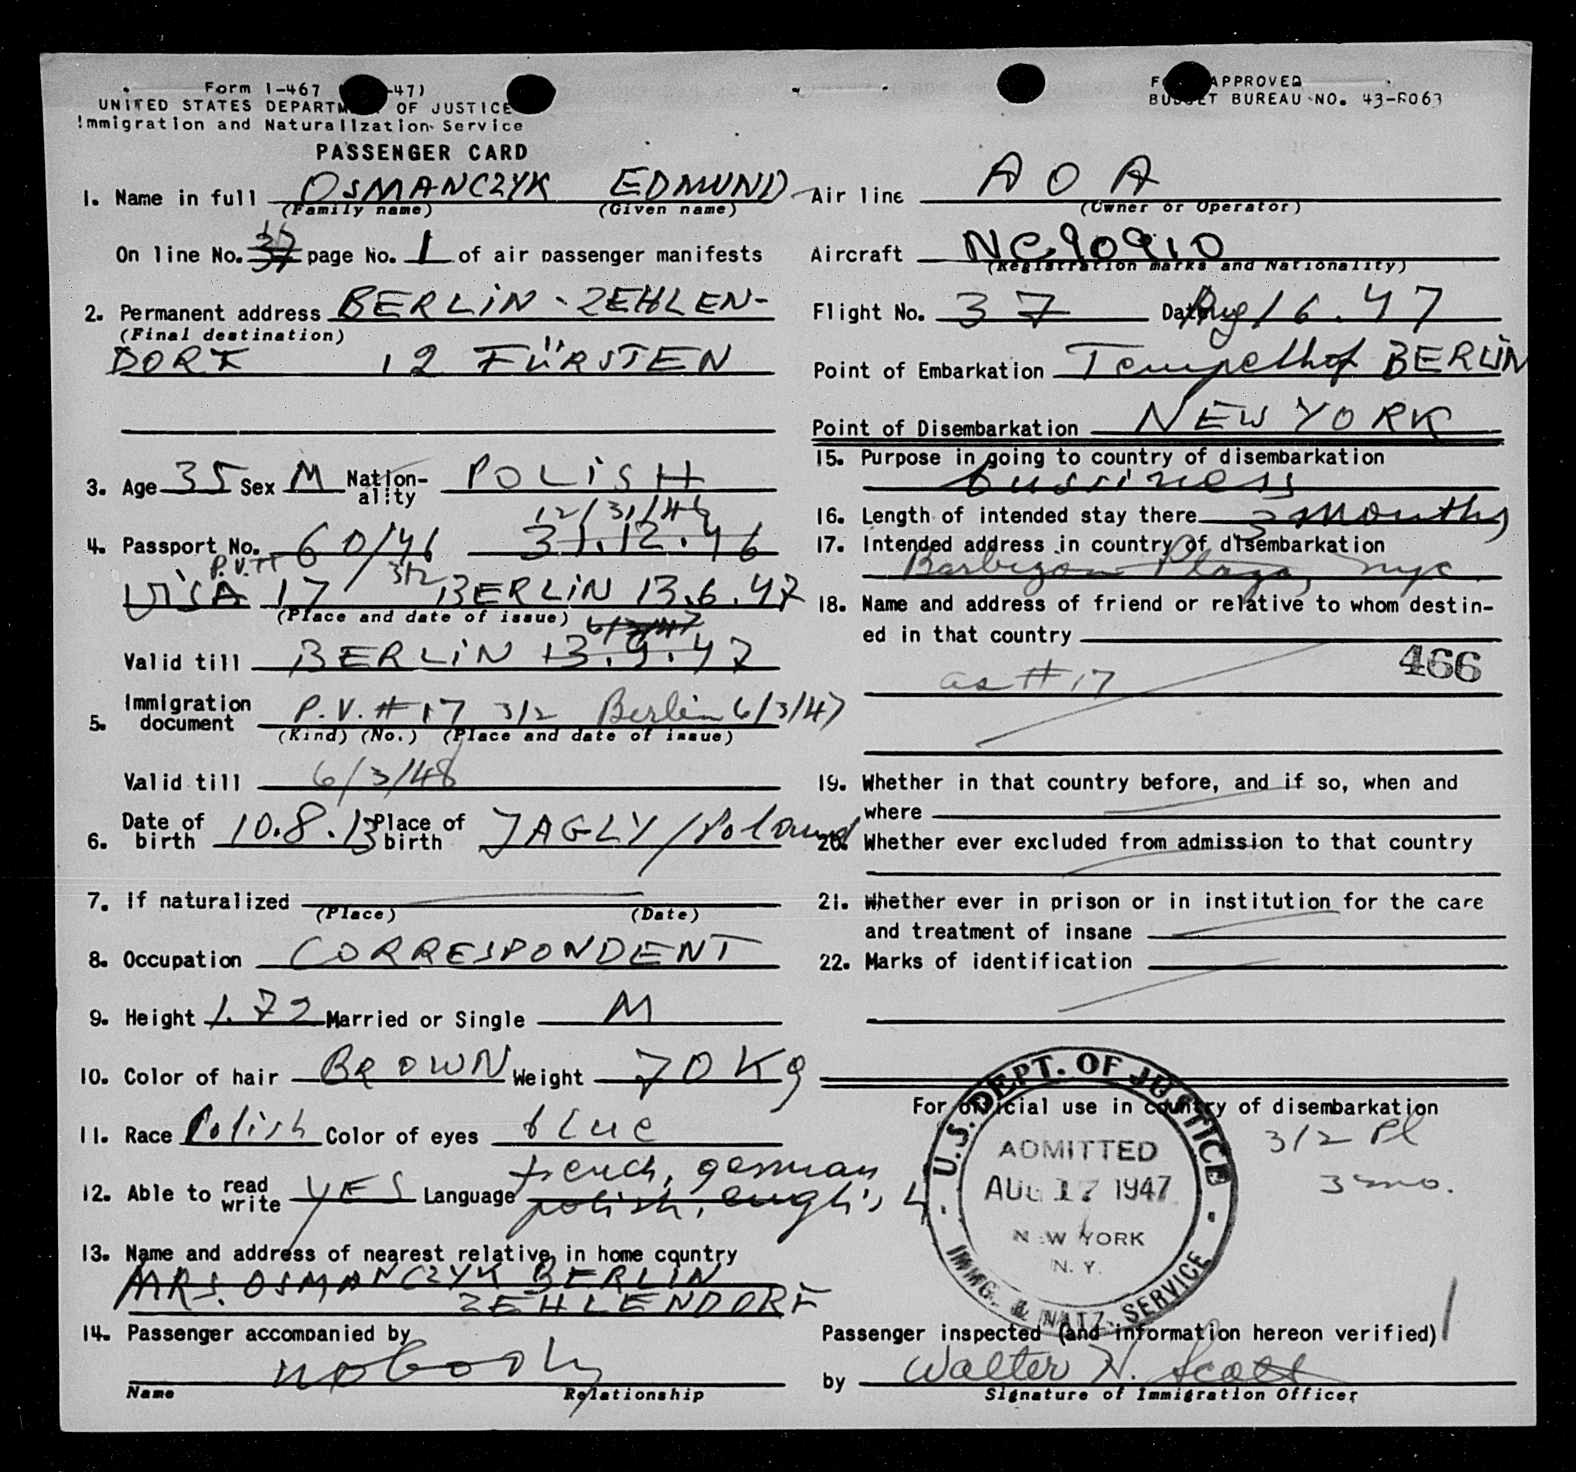 Form I-467 -47)
UNITED STATES DEPARTM OF JUSTICE
Immigration and Naturalization Service
PASSENGER CARD
F APPROVED
BU ET BUREAU NO. 43-R063
1. Name in full OSMANCZYK EDMUND
(Family name) (Given name)
On line No. 37 page No. 1 of air passenger manifests
2. Permanent address BERLIN - ZEHLEN-
(Final destination)
DORF 12 FÜRSTEN
3. Age 35 Sex M Nation-ality POLISH
12/31/46
4. Passport No. 60/46 31.12.46
P.V. #
VISA 17 / 312 BERLIN 13.6.47
(Place and date of issue) 6/3/47
Valid till BERLIN 13.9.47
5. Immigration document P.V. # 17 3/2 Berlin 6/3/47
(Kind) (No.) (Place and date of issue)
Valid till 6/3/48
6. Date of birth 10.8.13 Place of birth JAGLY/Poland
7. If naturalized
(Place) (Date)
8. Occupation CORRESPONDENT
9. Height 1.72 Married or Single M
10. Color of hair BROWN Weight 70 Kg
11. Race Polish Color of eyes blue
12. Able to read write YES Language french, german
polish, english
13. Name and address of nearest relative in home country
MRS. OSMANCZYK BERLIN
ZEHLENDORF
14. Passenger accompanied by
nobody
Name Relationship
Air line A O A
(Owner or Operator)
Aircraft NC90910
(Registration marks and Nationality)
Flight No. 37 Date Aug 16. 47
Point of Embarkation Tempelhof BERLIN
Point of Disembarkation NEW YORK
15. Purpose in going to country of disembarkation
bussiness
16. Length of intended stay there 3 months
17. Intended address in country of disembarkation
Barbizon Plaza, nyc
18. Name and address of friend or relative to whom destin-
ed in that country
466
as # 17
19. Whether in that country before, and if so, when and
where
20. Whether ever excluded from admission to that country
21. Whether ever in prison or in institution for the care
and treatment of insane
22. Marks of identification
For official use in country of disembarkation
3/2 Pl
3 mo.
U.S. DEPT. OF JUSTICE
ADMITTED
AUG 17 1947
NEW YORK
N. Y.
IMMG. & NATZ. SERVICE
Passenger inspected (and information hereon verified)
by Walter H. Scott
Signature of Immigration Officer